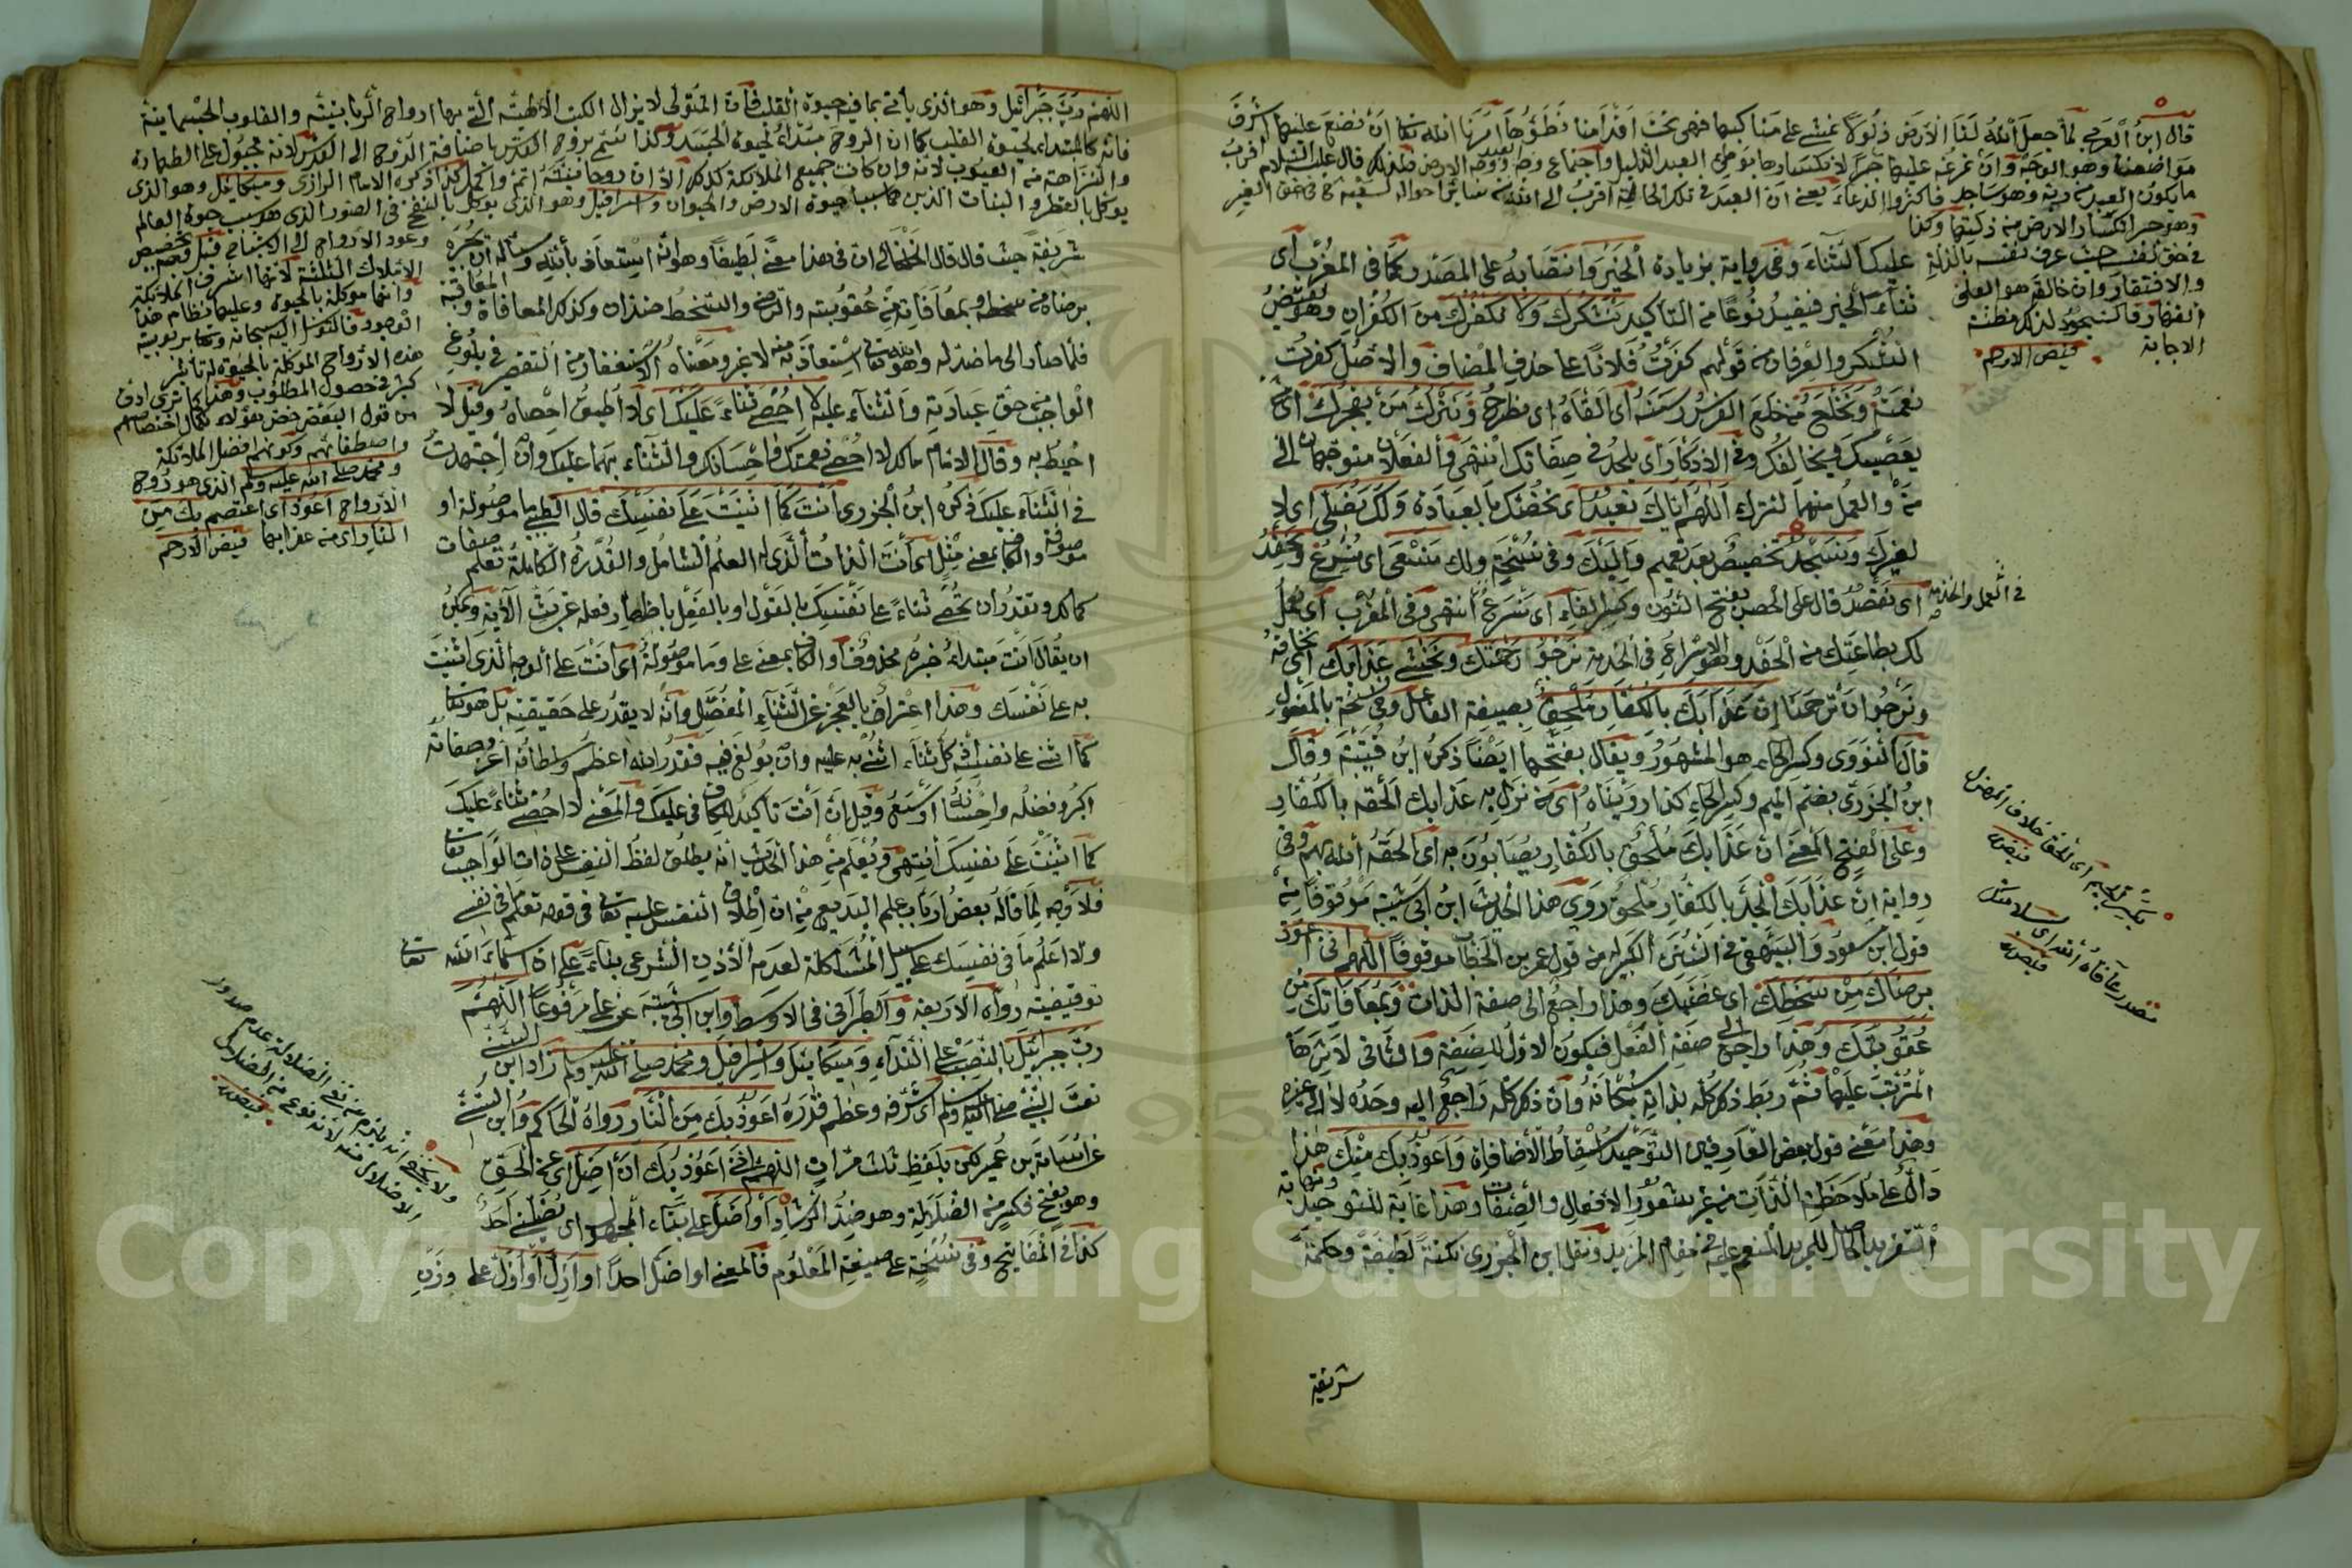 قال ابن العربي لما جعل الله لنا الارض ذلولا نمشي على مناكبها فهي تحت اقدامنا نطؤها امرنا الله تعالى ان نضع عليها اشرف
ما يكون العبد من ربه وهو ساجد فاكثروا الدعاء يعني ان العبد في تلك الحالة اقرب الى الله من سائر احواله
في حق نفسه حيث عرف نفسه بالذلة
والافتقار وان خالقه هو العلي
القهار فالسجود لذلك مظنة
الاجابة فيض الارحم
عليك الثناء وفي رواية بزيادة الخير وانتصابه على المصدر كما في المغرب اي
ثناء الخير فيفيد نوعا من التأكيد نشكرك ولا نكفرك من الكفران وهو نقيض
الشكر والعرفان من قولهم كفرت فلانا على حذف المضاف والاصل كفرت
نعمته ونخلع من خلع الفرس رسنه اي القاه اي نطرح ونترك من يفجرك اي
يعصيك ويخالفك وفي الاذكار اي يلحد في صفاتك انتهى والفعلان متوجهان الى
من والعمل منهما لنترك اللهم اياك نعبد اي نخصك بالعبادة ولك نصلي اي لا
لغيرك ونسجد تخصيص بعد تعميم واليك وفي نسخة ولك نسعى اي نسرع ونحفد
اي نقصد قال على الحصن بفتح النون وكسر الفاء اي نسرع انتهى وفي المغرب اي نعمل
في العمل والخدمة
لك بطاعتك من الحفد وهو الاسراع في الخدمة نرجو رحمتك ونخشى عذابك اي نخافه
ونرجو ان ترحمنا ان عذابك بالكفار ملحق بصيغة الفاعل وفي نسخة بالمفعول
قال النووي وكسر الحاء هو المشهور ويقال بفتحها ايضا ذكره ابن قتيبة وقال
ابن الجزري بضم الميم وكسر الحاء كذا رويناه اي من نزل به عذابك الحقه بالكفار
وعلى الفتح المعنى ان عذابك ملحق بالكفار يصابون به اي الحقه الله بهم وفي
رواية ان عذابك الجد بالكفار ملحق روى هذا الحديث ابن ابي شيبة موقوفا من
قول ابن مسعود والبيهقي في السنن الكبير من قول عمر بن الخطاب موقوفا اللهم اني اعوذ
برضاك من سخطك اي غضبك وهذا راجع الى صفة الذات وبمعافاتك من
عقوبتك وهذا راجع الى صفة الفعل فيكون الاول للصفة والثاني لاثرها
المرتب عليها ثم ربط ذكر كله بذاته سبحانه وان ذكر كله راجع اليه وحده لا الى غيره
وهذا معنى قول بعض العارفين التوحيد اسقاط الاضافات واعوذ بك منك هذا
دال على ملاحظة الذات من غير شعور الافعال والصفات وهذا غاية للتوحيد ونهاية
التفريد الحاصل للمريد المنعم عليه في مقام المزيد ونقل ابن الجزري نكتة لطيفة وحكمة
شريفة
مصدر عافاه الله اي سلامتك
فيض
اللهم رب جبرائيل وهو الذي يأتي بما فيه حيوة القلب فان المتولي لانزال الكتب الالهية التي بها ارواح الربانية والقلوب الجسمانية
فانه كالمبتداء لحيوة القلب كما ان الروح مبتداء لحيوة الجسد ولذا سمي بروح القدس باضافة الروح الى القدس لانه مجبول على الطهارة
والنزاهة من العيوب لانه وان كانت جميع الملائكة كذلك الا ان روحانيته اتم واكمل كذا ذكره الامام الرازي وميكائيل وهو الذي
يوكل بالقطر والنبات الذين هما سببا حيوة الارض والحيوان واسرافيل وهو الذي يوكل بالنفخ في الصور الذي هو سبب حيوة العالم
وعود الارواح الى الاشباح قيل فيه تخصيص
الاملاك الثلثة لانها اشرف الملائكة
وانها موكلة بالحيوة وعليها نظام هذا
الوجود فالتوسل اليه سبحانه وتعالى بربوبية
هذه الارواح الموكلة بالحيوة له تأثير
كبير في حصول المطلوب وهذا كما ترى ادق
من قول البعض خص هؤلاء لكمال اختصاصهم
واصطفائهم وكونهم افضل الملائكة
ومحمد صلى الله عليه وسلم الذي هو روح
الارواح اعوذ اي اعتصم بك من
النار اي من عذابها فيض الارحم
شريفة حيث قال قال الخطابي ان في هذا معنى لطيفا وهو انه استعاذ بالله وسأله ان يجيره
برضاه من سخطه وبمعافاته من عقوبته والرضى والسخط ضدان وكذلك المعافاة والمعاقبة
فلما صار الى ما ضد له وهو الله تعالى استعاذ به منه لا غير ومعناه الاستغفار من التقصير في بلوغ
الواجب من حق عبادته والثناء عليه لا احصي ثناء عليك اي لا اطيق احصاه وقيل لا
احيط به وقال الامام مالك لا احصي نعمتك واحسانك والثناء بهما عليك وان اجتهدت
في الثناء عليك ذكره ابن الجزري انت كما اثنيت على نفسك قال الطيبي ما موصولة او
موصوفة والكاف بمعنى مثل اي انت الذات الذي له العلم الشامل والقدرة الكاملة تعلم صفات
كمالك وتقدر ان تحصي ثناء على نفسك بالقول او بالفعل باظهار فعله عن بث الآية ويمكن
ان يقال انت مبتداء خبره محذوف والكاف بمعنى على وما موصولة اي انت على الوجه الذي اثنيت
به على نفسك وهذا اعتراف بالعجز عن الثناء المفصل وانه لا يقدر على حقيقته بل هو تعالى
كما اثنى على نفسه كل ثناء اثني به عليه وان بولغ فيه فقدر الله اعظم وسلطانه اعز وصفاته
اكبر وفضله واحسانه اوسع وقيل ان انت تأكيد للكاف في عليك والمعنى لا احصي ثناء عليك
كما اثنيت على نفسك انتهى ويعلم من هذا الحديث انه يطلق لفظ النفس على ذات الواجب تعالى
فلا وجه لما قاله بعض ارباب علم البديع من ان اطلاق النفس عليه تعالى في قوله تعلم ما في نفسي
ولا اعلم ما في نفسك على سبيل المشاكلة لعدم الاذن الشرعي بناء على ان اسماء الله تعالى
توقيفية رواه الاربعة والطبراني في الاوسط وابن ابي شيبة عن علي مرفوعا اللهم
رب جبرائيل بالنصب على النداء وميكائيل واسرافيل ومحمد صلى الله عليه وسلم زاد ابن السني
نعت النبي صلى الله عليه وسلم اي شرفه وعظم قدره اعوذ بك من النار رواه الحاكم وابن السني
عن اسامة بن عمير لكن بلفظ ثلث مرات اللهم اني اعوذ بك ان اضل اي عن الحق
وهو بفتح فكسر من الضلالة وهو ضد الرشاد او اضل على بناء المجهول اي يضلني احد
كذا في المفاتيح وفي نسخة على صيغة المعلوم فالمعنى او اضل احدا او ازل او ازل على وزن
فيض
Copyright © King Saud University